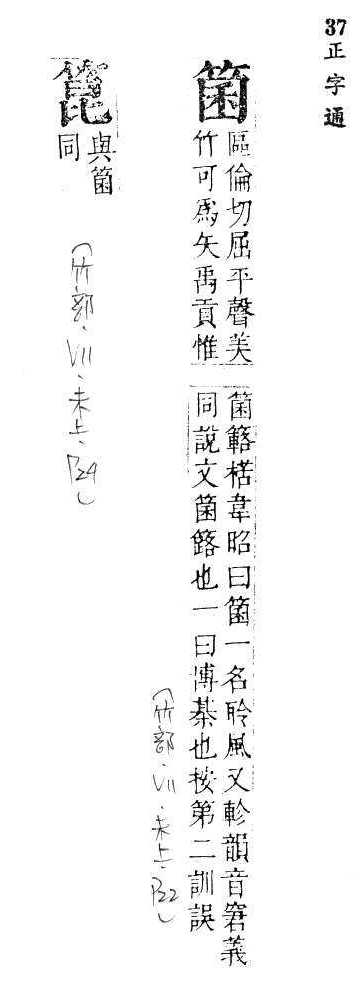 37正字通
箘
區倫切屈平聲美
竹可爲矢禹貢惟
箘簵楛韋昭曰箘一名聆風又軫韻音窘義
同說文箘簬也一曰愽棊也按第二訓誤
(竹部·VII·未上·P22)
箟
與箘
同
(竹部·VII·未上·P24)